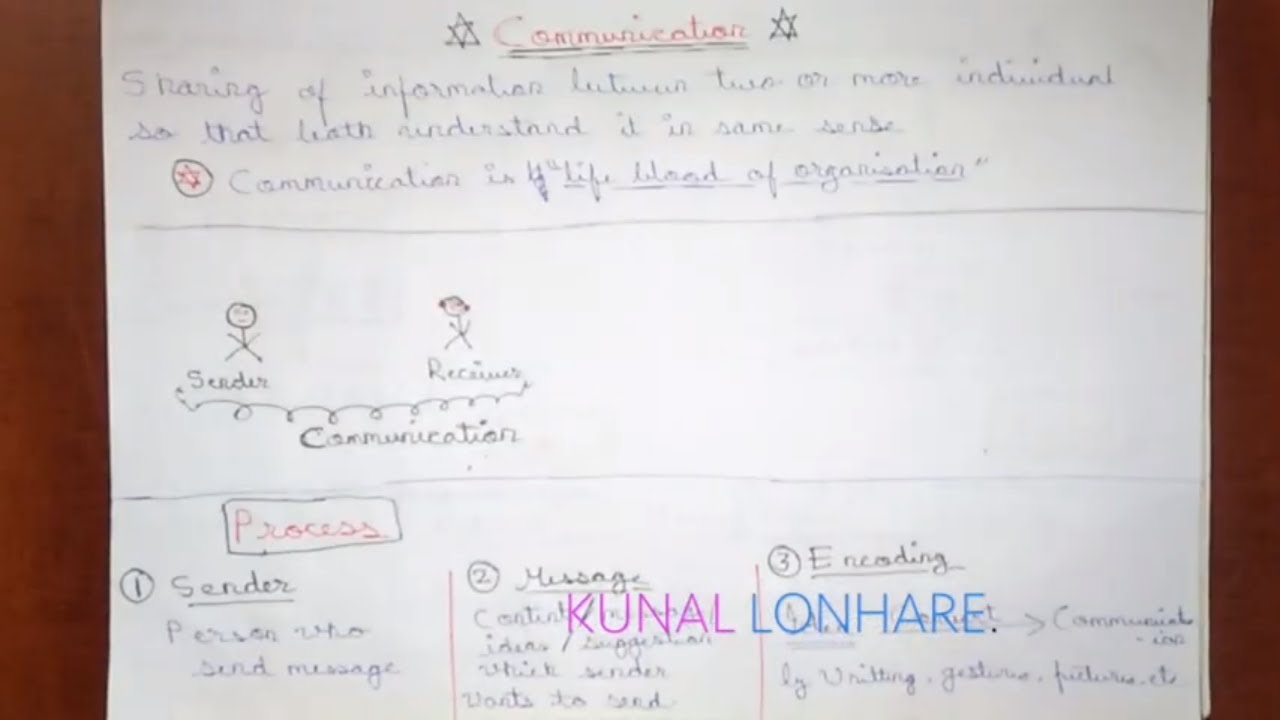 Communication
Sharing of information between two or more individual
so that both understand it in same sense
Communication is "life blood of organisation"
Sender
Receiver
Communication
Process
① Sender
Person who
send message
② Message
Content /
ideas / suggestion
which sender
wants to send
③ Encoding
> Communicat
-ion
by Writting, gestures, pictures, etc
KUNAL LONHARE.